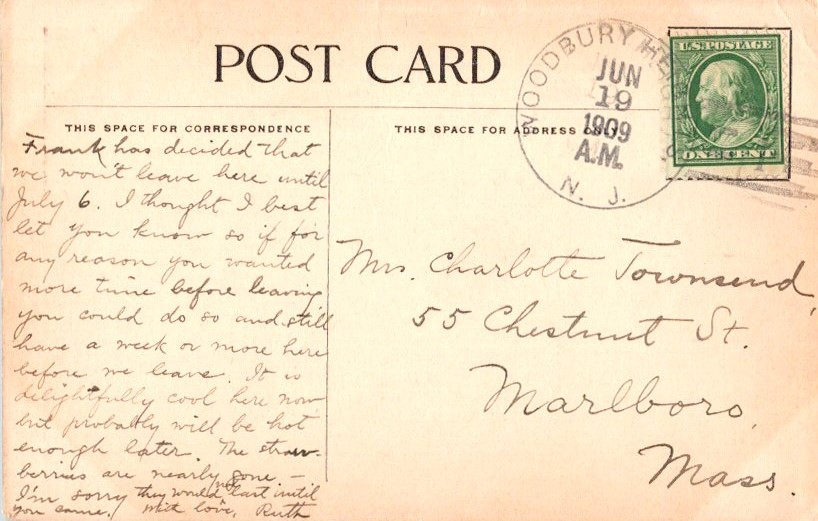 POST CARD
THIS SPACE FOR CORRESPONDENCE
THIS SPACE FOR ADDRESS ONLY
WOODBURY HEIGHTS
JUN
19
1909
A.M.
N. J.
U.S. POSTAGE
ONE CENT
Frank has decided that
we won't leave here until
July 6. I thought I best
let you know so if for
any reason you wanted
more time before leaving
you could do so and still
have a week or more here
before we leave. It is
delightfully cool here now
but probably will be hot
enough later. The straw-
berries are nearly gone –
I'm sorry they would not last until
you came. With love, Ruth
Mrs. Charlotte Townsend,
55 Chestnut St.
Marlboro,
Mass.